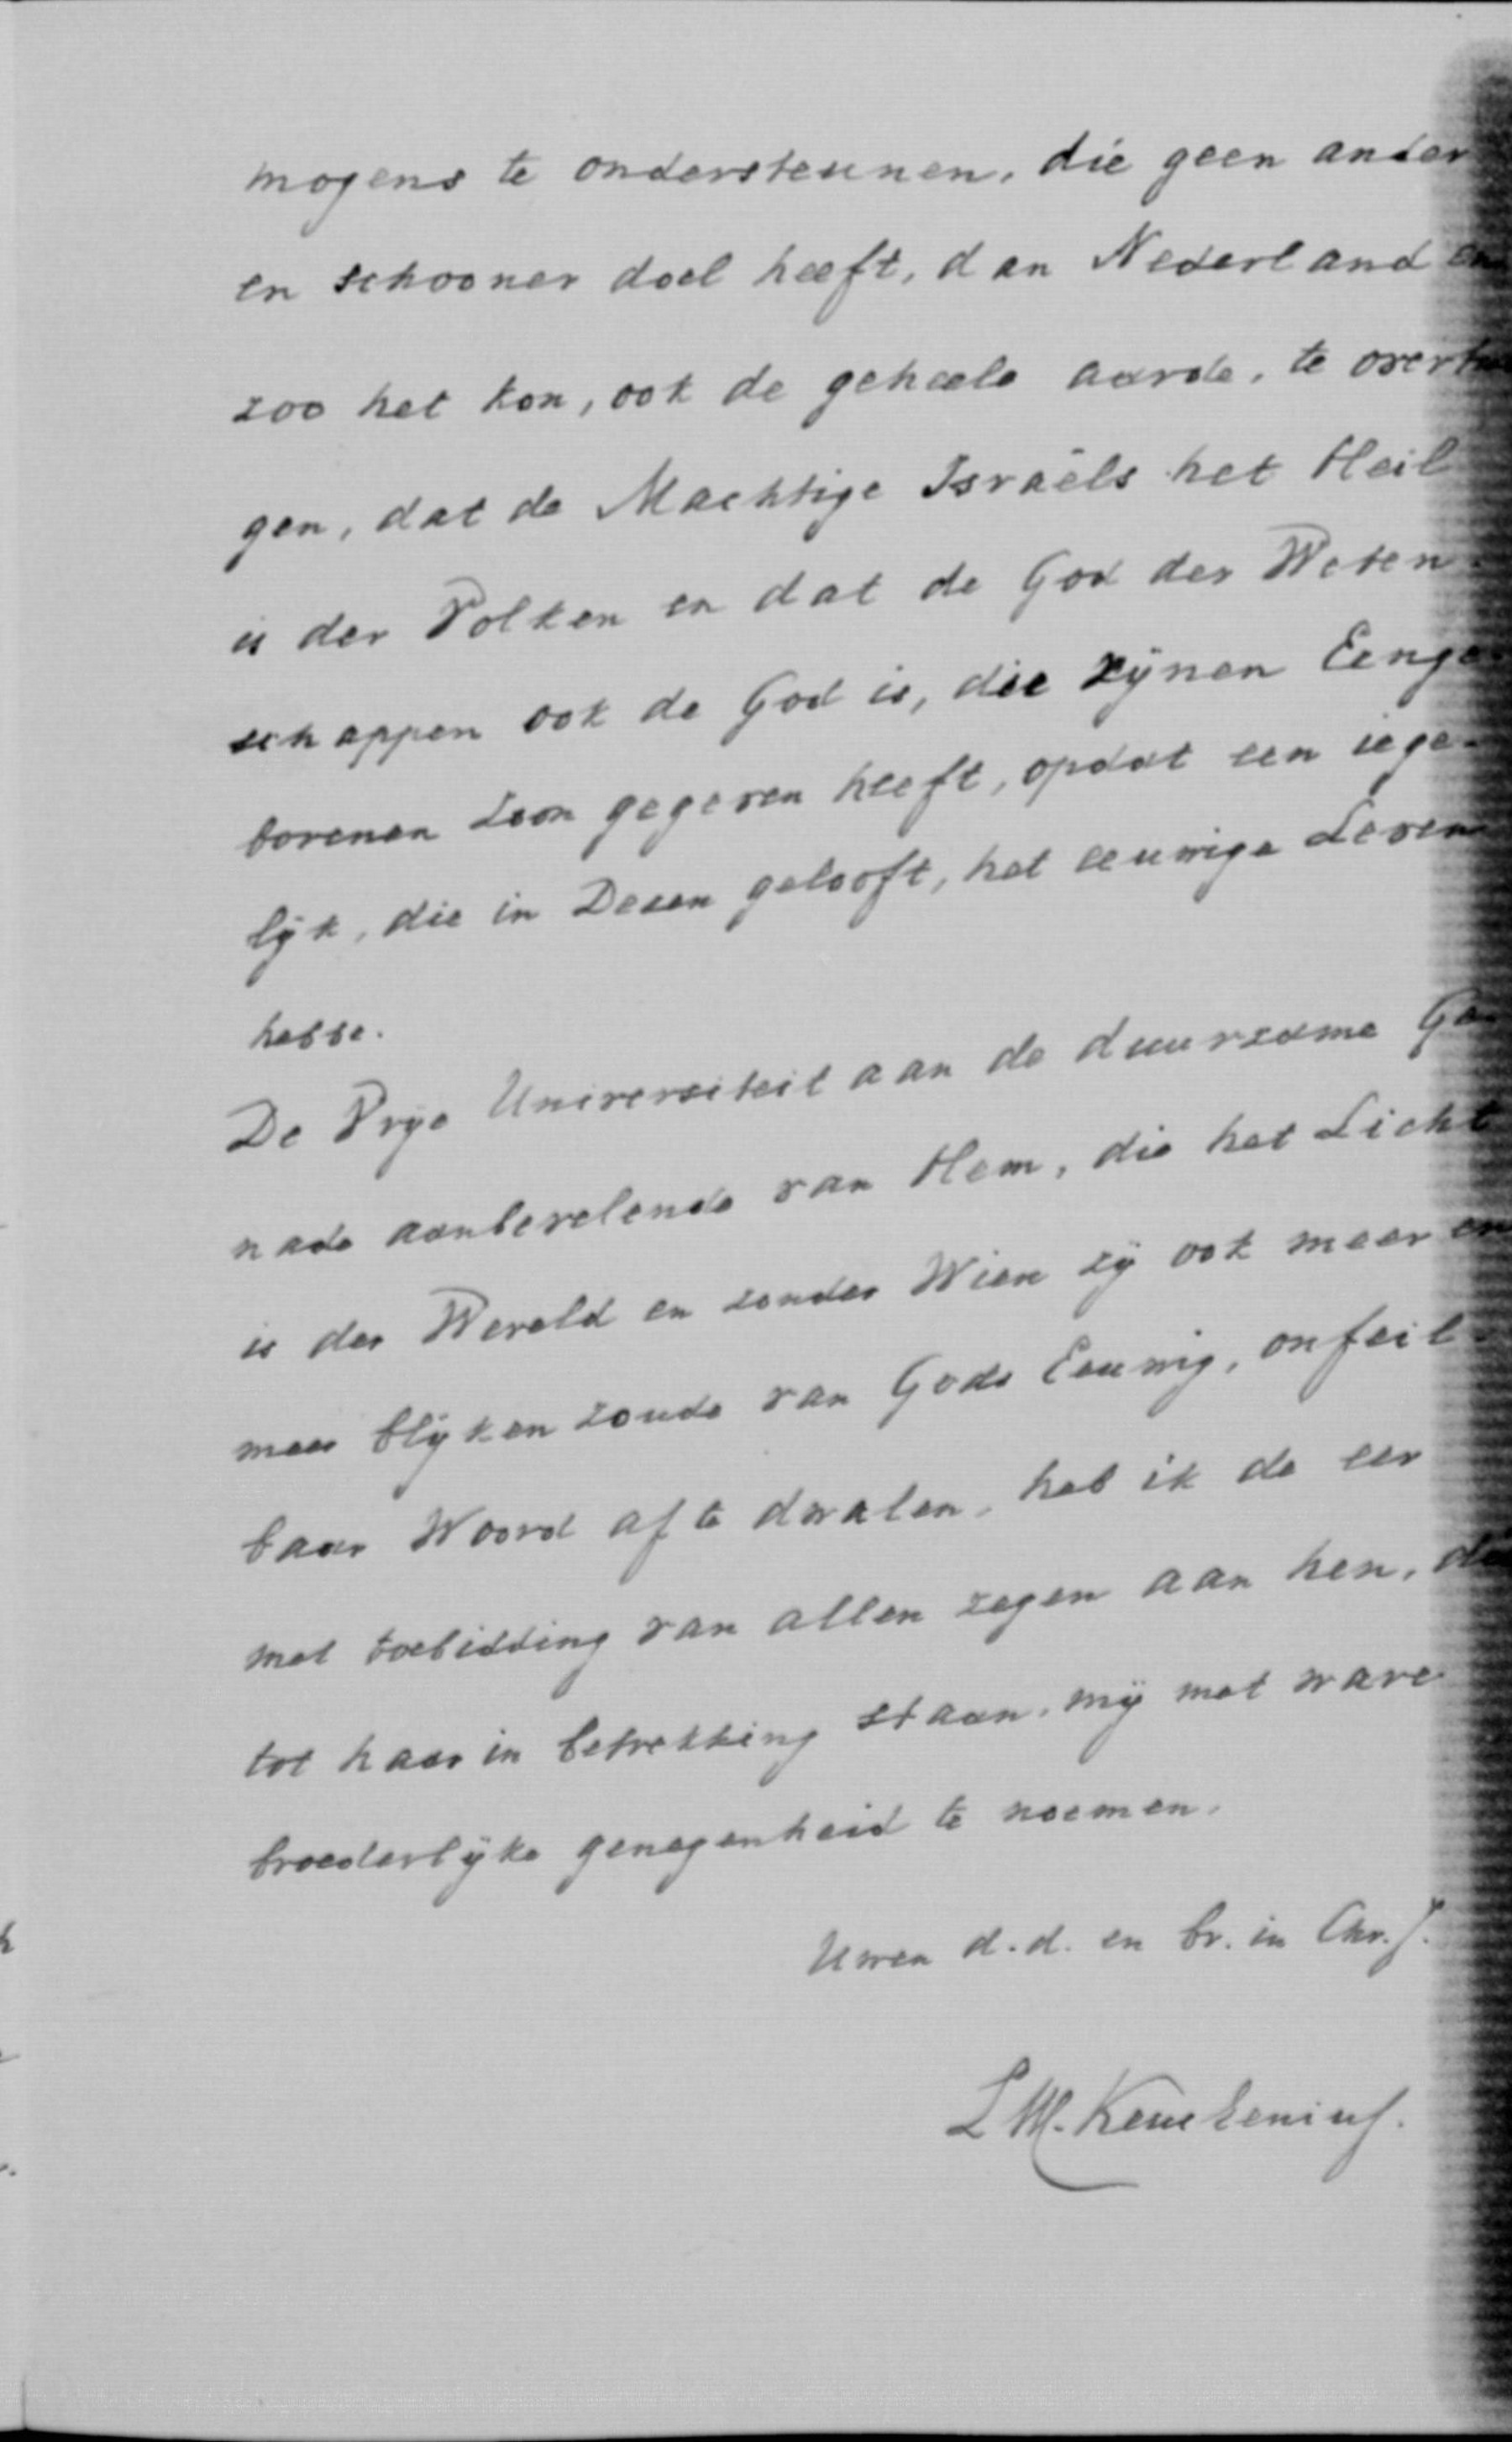 mogens te ondersteunen, die geen ander
en schooner doel heeft, dan Nederland en
zoo het kon, ook de geheele aarde, te overtui
gen, dat de Machtige Israëls het Heil
is der Volken en dat de God der Weten-
schappen ook de God is, die zijnen Eenge-
borenen Zoon gegeven heeft, opdat een iege-
lijk, die in Dezen gelooft, het eeuwige Leven
hebbe.
De Vrije Universiteit aan de duurzame Ge-
nade aanbevelende van Hem, die het Licht
is der Wereld en zonder Wien zij ook meer en
meer blijken zoude van Gods Eeuwig, onfeil-
baar Woord af te dwalen, heb ik de eer
met toebidding van allen zegen aan hen, die
tot haar in betrekking staan, mij met ware
broederlijke genegenheid te noemen,
Uwen d.d. en br. in Chr. J.
L W. Keuchenius.